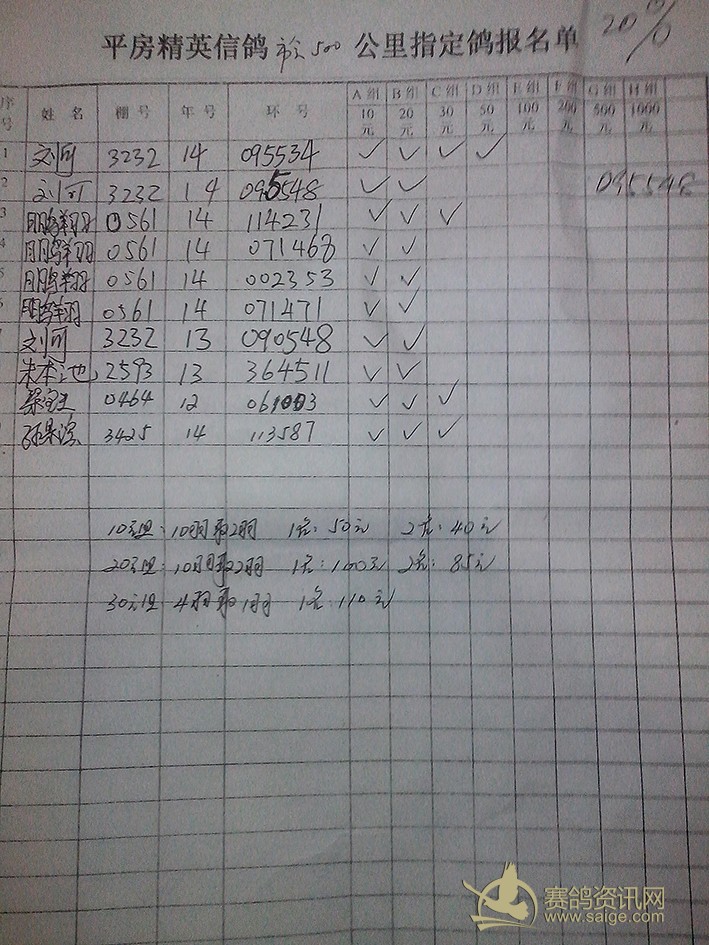 20%
平房精英信鸽 市会 500 公里指定鸽报名单
序号 姓名 棚号 年号 环号 A组10元 B组20元 C组30元 D组50元 E组100元 F组200元 G组500元 H组1000元
1 刘可 3232 14 095534 ✓ ✓ ✓ ✓
2 刘可 3232 14 095548 ✓ ✓ 095548
3 鹏翔 0561 14 114231 ✓ ✓ ✓
4 鹏翔 0561 14 071468 ✓ ✓
5 鹏翔 0561 14 002353 ✓ ✓
6 鹏翔 0561 14 071471 ✓ ✓
7 刘可 3232 13 090548 ✓ ✓
朱本池 2593 13 364511 ✓ ✓
0464 12 061003 ✓ ✓ ✓
3425 14 113587 ✓ ✓ ✓
10元组: 10羽取2羽 1名: 50元 2名: 40元
20元组: 10羽取2羽 1名: 100元 2名: 85元
30元组 4羽取1羽 1名: 110元
赛鸽资讯网
www.saige.com